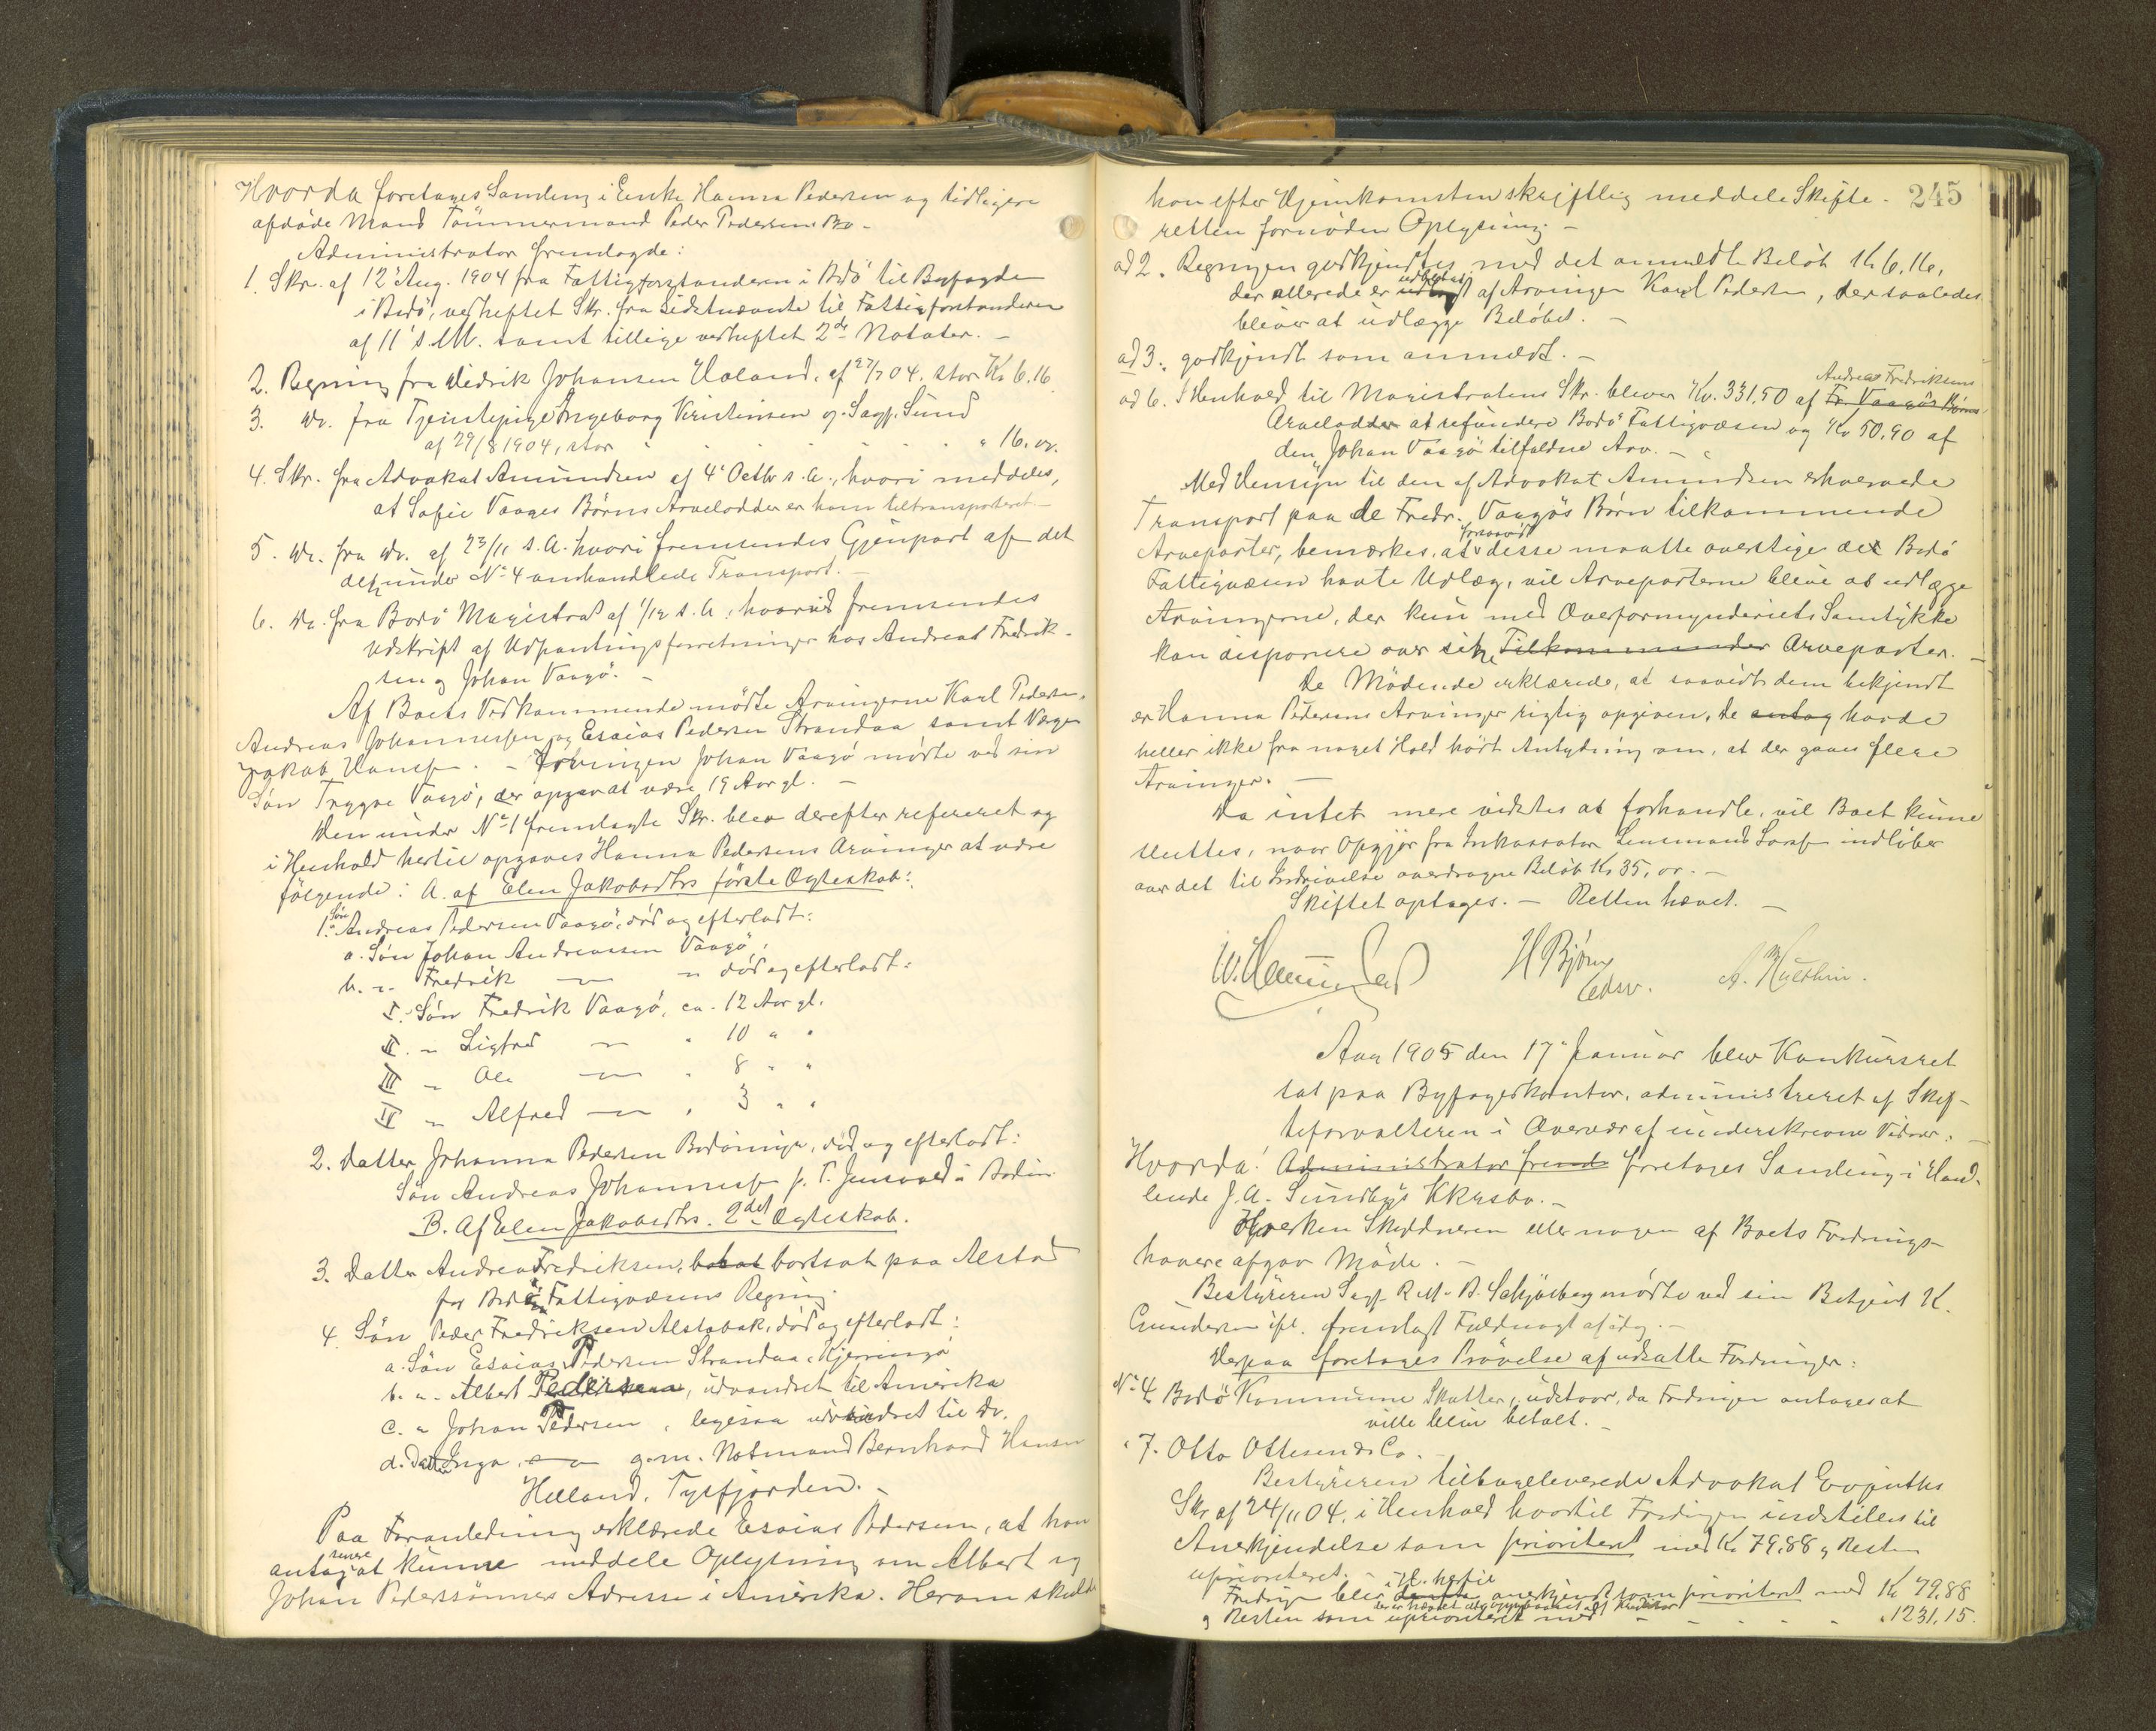 Hvorda foretages Samling i Enke Hanna Pedersen og tidligere
afdøde Mand Tømmermand Peder Pedersens Bo -
Administrator fremlagde:
1. Skr. af 12' Aug. 1904 fra Fattigforstanderen i Bodö til Byfogden
i Bodö, vedheftet Skr. fra Sidstnævnte til Fattigforstanderen
af 11' s. M. samt tillige vedheftet 2de Notater. -
2. Regning fra Didrik Johansen Valand, af 27/7 04. stor Kr 6.16
3. Do. fra Tjenstepige Ingeborg Kristensen og Sagf. Sund
af 29/8 1904, stor " 16. oo.
4. Skr. fra Advokat Amundsen af 4' Octbr s. A., hvori meddeles,
at Sofie Vaagøs Børns Arvelodder er ham tiltransporteret -
5. Do. fra Do. af 23/11 s. A. hvori fremsendes Gjenpart af det
under No 4 omhandlede Transport. -
6. Do. fra Bodö Magistrat af 1/12 s. A., hvorved fremsendes
Udskrift af Udpantningsforretninger hos Andreas Fredrik-
sen og Johan Vaagö. -
Af Boets Vedkommende mødte Arvingerne Karl Pedersen,
Andreas Johannessen og Esaias Pedersen Strandaa samt Værge
Jakob Hansen. - Arvingen Johan Vaagö mødte ved sin
Søn Trygve Vaagö, der opgav at være 19 Aar gl. -
Den under No 1 fremlagte Skr. blev derefter refereret og
i Henhold hertil opgaves Hanna Pedersens Arvinger at være
følgende: A. af Elen Jakobsdtrs første Ægteskab:
1. Søn Andreas Pedersen Vaagö, død og efterladt:
a. Søn Johan Andreassen Vaagö,
b. " Fredrik — " død og efterladt:
I. Søn Fredrik Vaagö, ca. 12 Aar gl.
II. " Sigfred — " 10 " "
III " Ole — " 8 " "
IV " Alfred — " 3 " "
2. Datter Johanna Pedersen Bodöninga, død og efterladt:
Søn Andreas Johannessen p. T. Jensvold i Bodin
B. Af Elen Jakobsdtrs. 2det Ægteskab.
3. Datter Andrea Fredriksen, bortsat paa Alstad
for Bodö Fattigvæsens Regning.
4. Søn Peder Fredriksen Alstabak, død og efterladt:
a. Søn Esaias Pedersen Strandaa, Kjerringø
b. " Albert Pedersen, udvandret til Amerika
c. " Johan Pedersen, ligesaa udvandret til Do.
d. Datter Inga, — g.m. Notmand Bernhard Hansen
Helland, Tysfjorden. -
Paa Foranledning erklærede Esaias Pedersen, at han
antog senere at kunne meddele Oplysning om Albert og
Johan Pederssønners Adresse i Amerika. Herom skulde
245
han efter Hjemkomsten skriftlig meddele Skifte-
retten fornøden Oplysning. -
ad 2. Regningen godkjendtes med det anmeldte Beløb Kr 6,16,
der allerede er udbetalt af Arvingen Karl Pedersen, der saaledes
bliver at udlægge Beløbet. -
ad 3. godkjendt som anmeldt. -
ad 6. I Henhold til Magistratens Skr. bliver Kr. 331,50 af Fr. Vaagös Børns Andreas Fredriksens
Arvelodder at refundere Bodö Fattigvæsen og Kr 50,90 af
den Johan Vaagö tilfaldne Arv. -
Med Hensyn til den af Advokat Amundsen erhvervede
Transport paa de Fredr. Vaagös Børn tilkommende
Arveparter, bemærkes, at forsaavidt desse maatte overstige det Bodö
Fattigvæsen havte Udlæg, vil Arveparterne blive at udlægge
Arvingerne, der kun med Overformynderiets Samtykke
kan disponere over Tilkommende Arveparter. -
De Mødende erklærede, at saavidt dem bekjendt
er Hanna Pedersens Arvinger rigtig opgiven, de antog havde
heller ikke fra noget Hold hørt Antydning om, at der gaves flere
Arvinger. -
Da intet mere vidstes at forhandle, vil Boet kunne
sluttes, naar Opgjør fra Inkassator Lensmand indløber
over det til Inddrivelse overdragne Beløb Kr 35, oo. -
Skiftet optages. - Retten hævet. -
H Bjørn
Edsv.
Aar 1905 den 17' Januar blev Konkursret
sat paa Byfogedkontor, administreret af Skif-
teforvalteren i Overvær af underskrevne Vidner. -
Hvorda: Administrator fremla foretages Samling i Hand-
lende J. A. Sundbys Kkrsbo. -
Hverken Skyldneren eller nogen af Boets Fordrings-
havere afgav Møde. -
Bestyreren Sagf. R. M. B. Schjølberg mødte ved sin Betjent K.
Gundersen ifl. fremlagt Fuldmagt af idag. -
Derpaa foretages Prøvelse af udsatte Fordringer:
No 4 Bodö Kommune Skatter, udstaar, da Fordringen antages at
ville blive betalt. -
" 7. Otto Ottesen & Co.
Bestyreren tilbageleverede Advokat Evjenths
Skr af 24/11 04, i Henhold hvortil Fordringen indstilles til
Anerkjendelse som prioriteret med Kr 79,88 og Resten
uprioriteret. - i H. hertil
Fordringen blev anerkjendt som prioriteret med Kr 79,88
og Resten som uprioriteret med - - - " 1231,15.